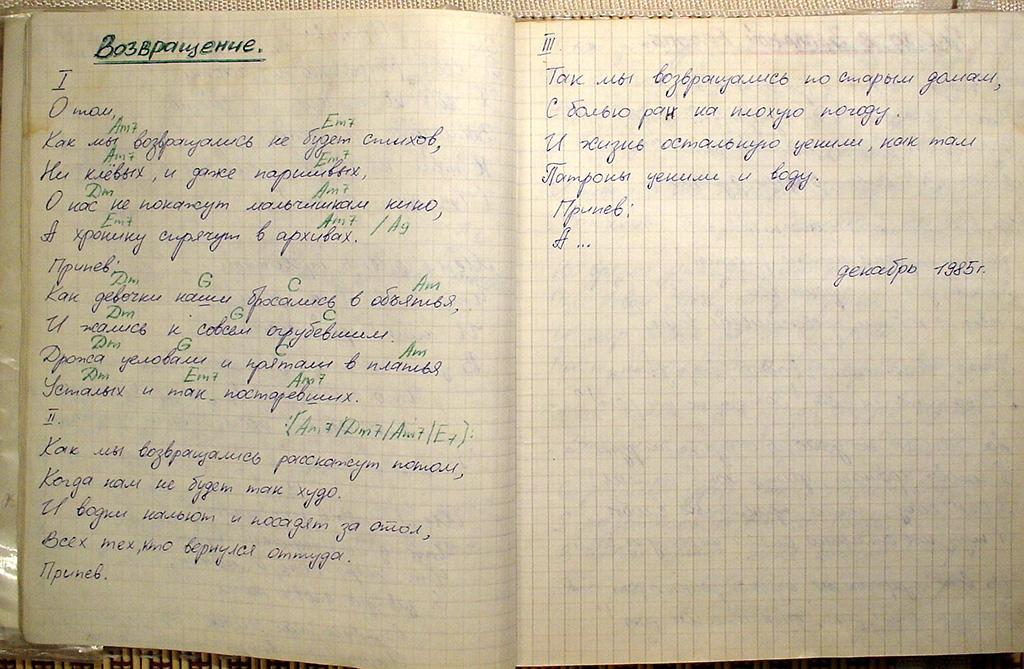 Возвращение.
I
О том,
Am7 Em7
Как мы возвращались не будет стихов,
Am7 Em7
Ни клёвых, и даже паршивых,
Dm Am7
О нас не покажут мальчишкам кино,
Em7 Am7 / A9
А хронику спрячут в архивах.
Припев:
Dm G C Am
Как девочки наши бросались в объятья,
Dm G C
И жались к совсем огрубевшим.
Dm G C Am
Дрожа целовали и прятали в платья
Dm Em7 Am7
Усталых и так постаревших.
II.
:[Am7/Dm7/Am7/E7]:
Как мы возвращались расскажут потом,
Когда нам не будет так худо.
И водки нальют и посадят за стол,
Всех тех, кто вернулся оттуда.
Припев.
III
Так мы возвращались по старым домам,
С болью ран на плохую погоду.
И жизнь остальную ценили, как там
Патроны ценили и воду.
Припев:
А ...
декабрь 1985г.